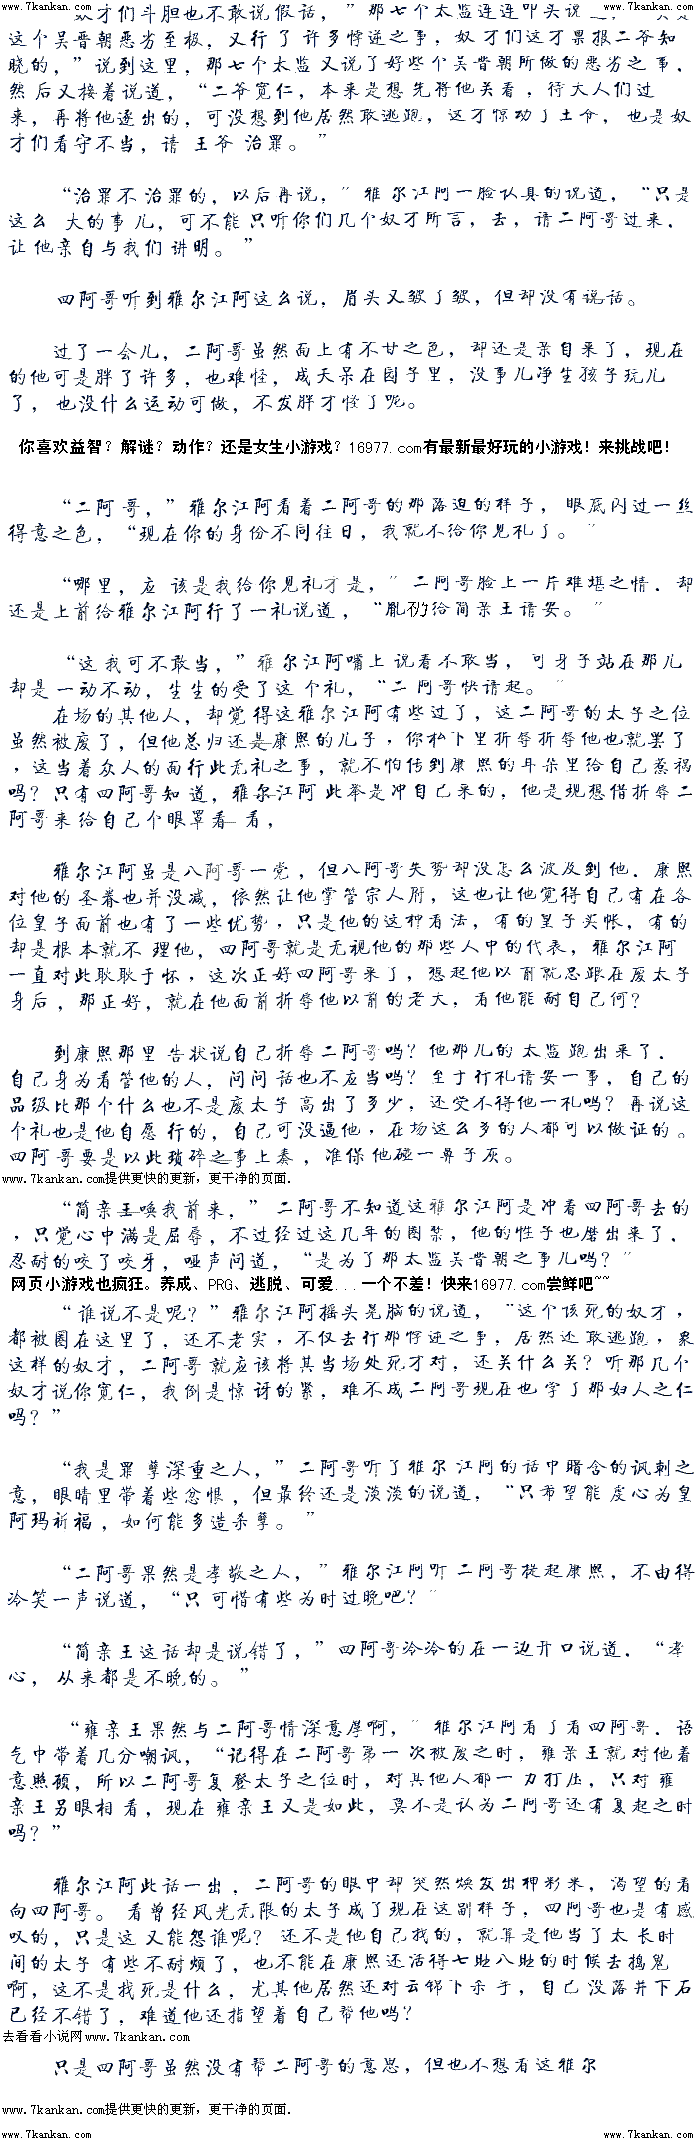 www.7kankan.com www.7kankan.com
奴才们斗胆也不敢说假话，”那七个太监连连叩头说
这个吴晋朝恶劣至极，又行了许多悖逆之事，奴才们这才禀报二爷知
晓的，”说到这里，那七个太监又说了好些个吴晋朝所做的恶劣之事．
然后又接着说道，“二爷宽仁，本来是想先将他关着，待大人们过
来，再将他逐出的，可没想到他居然敢逃跑，这才惊动了王爷，也是奴
才们看守不当，请王爷治罪。”
“治罪不治罪的，以后再说，”雅尔江阿一脸认真的说道，“只是
这么大的事儿，可不能只听你们几个奴才所言，去，请二阿哥过来．
让他亲自与我们讲明。”
四阿哥听到雅尔江阿这么说，眉头又皱了皱，但却没有说话。
过了一会儿，二阿哥虽然面上有不甘之色，却还是亲自来了，现在
的他可是胖了许多，也难怪，成天呆在园子里，没事儿净生孩子玩儿
了，也没什么运动可做，不发胖才怪了呢。
你喜欢益智？解谜？动作？还是女生小游戏？16977.com有最新最好玩的小游戏！来挑战吧！
“二阿哥，”雅尔江阿看着二阿哥的那落迫的样子，眼底闪过一丝
得意之色，“现在你的身份不同往日，我就不给你见礼了。”
“哪里，应该是我给你见礼才是，”二阿哥脸上一片难堪之情．却
还是上前给雅尔江阿行了一礼说道，“胤礽给简亲王请安。”
“这我可不敢当，”雅尔江阿嘴上说着不敢当，可身子站在那儿
却是一动不动，生生的受了这个礼，“二阿哥快请起。”
在场的其他人，却觉得这雅尔江阿有些过了，这二阿哥的太子之位
虽然被废了，但他总归还是康熙的儿子，你私下里折辱折辱他也就罢了
，这当着众人的面行此无礼之事，就不怕传到康熙的耳朵里给自己惹祸
吗？只有四阿哥知道，雅尔江阿此举是冲自己来的，他是现想借折辱二
阿哥来给自己个眼罩看看，
雅尔江阿虽是八阿哥一党，但八阿哥失势却没怎么波及到他．康熙
对他的圣眷也并没减，依然让他掌管宗人府，这也让他觉得自己有在各
位皇子面前也有了一些优势，只是他的这种看法，有的皇子买帐，有的
却是根本就不理他，四阿哥就是无视他的那些人中的代表，雅尔江阿
一直对此耿耿于怀，这次正好四阿哥来了，想起他以前就总跟在废太子
身后，那正好，就在他面前折辱他以前的老大，看他能耐自己何？
到康熙那里告状说自己折辱二阿哥吗？他那儿的太监跑出来了．
自己身为看管他的人，问问话也不应当吗？至于行礼请安一事，自己的
品级比那个什么也不是废太子高出了多少，还受不得他一礼吗？再说这
个礼也是他自愿行的，自己可没逼他，在场这么多的人都可以做证的。
四阿哥要是以此琐碎之事上奏，准保他碰一鼻子灰。
www.7kankan.com提供更快的更新，更干净的页面．
“简亲王唤我前来，”二阿哥不知道这雅尔江阿是冲着四阿哥去的
，只觉心中满是屈辱，不过经过这几年的圈禁，他的性子也磨出来了．
忍耐的咬了咬牙，哑声问道，“是为了那太监吴晋朝之事儿吗？”
网页小游戏也疯狂。养成、PRG、逃脱、可爱...一个不差！快来16977.com尝鲜吧~~
“谁说不是呢？”雅尔江阿摇头晃脑的说道，“这个该死的奴才，
都被圈在这里了，还不老实，不仅去行那悖逆之事，居然还敢逃跑，象
这样的奴才，二阿哥就应该将其当场处死才对，还关什么关？听那几个
奴才说你宽仁，我倒是惊讶的紧，难不成二阿哥现在也学了那妇人之仁
吗？”
“我是罪孽深重之人，”二阿哥听了雅尔江阿的话中暗含的讽刺之
意，眼睛里带着些忿恨，但最终还是淡淡的说道，“只希望能虔心为皇
阿玛祈福，如何能多造杀孽。”
“二阿哥果然是孝敬之人，”雅尔江阿听二阿哥提起康熙，不由得
冷笑一声说道，“只可惜有些为时过晚吧？”
“简亲王这话却是说错了，”四阿哥冷冷的在一边开口说道．“孝
心，从来都是不晚的。”
“雍亲王果然与二阿哥情深意厚啊，”雅尔江阿看了看四阿哥．语
气中带着几分嘲讽，“记得在二阿哥第一次被废之时，雍亲王就对他着
意照顾，所以二阿哥复登太子之位时，对其他人都一力打压，只对雍
亲王另眼相看，现在雍亲王又是如此，莫不是认为二阿哥还有复起之时
吗？”
雅尔江阿此话一出，二阿哥的眼中却突然焕发出神彩来，渴望的看
向四阿哥。看曾经风光无限的太子成了现在这副样子，四阿哥也是有感
叹的，只是这又能怨谁呢？还不是他自己找的，就算是他当了太长时
间的太子有些不耐烦了，也不能在康熙还活得七旺八旺的时候去捣鬼
啊，这不是找死是什么，尤其他居然还对云锦下杀手，自己没落井下石
已经不错了，难道他还指望着自己帮他吗？
去看看小说网www.7kankan.com
只是四阿哥虽然没有帮二阿哥的意思，但也不想看这雅尔
www.7kankan.com提供更快的更新，更干净的页面．
www.7kankan.com www.7kankan.com